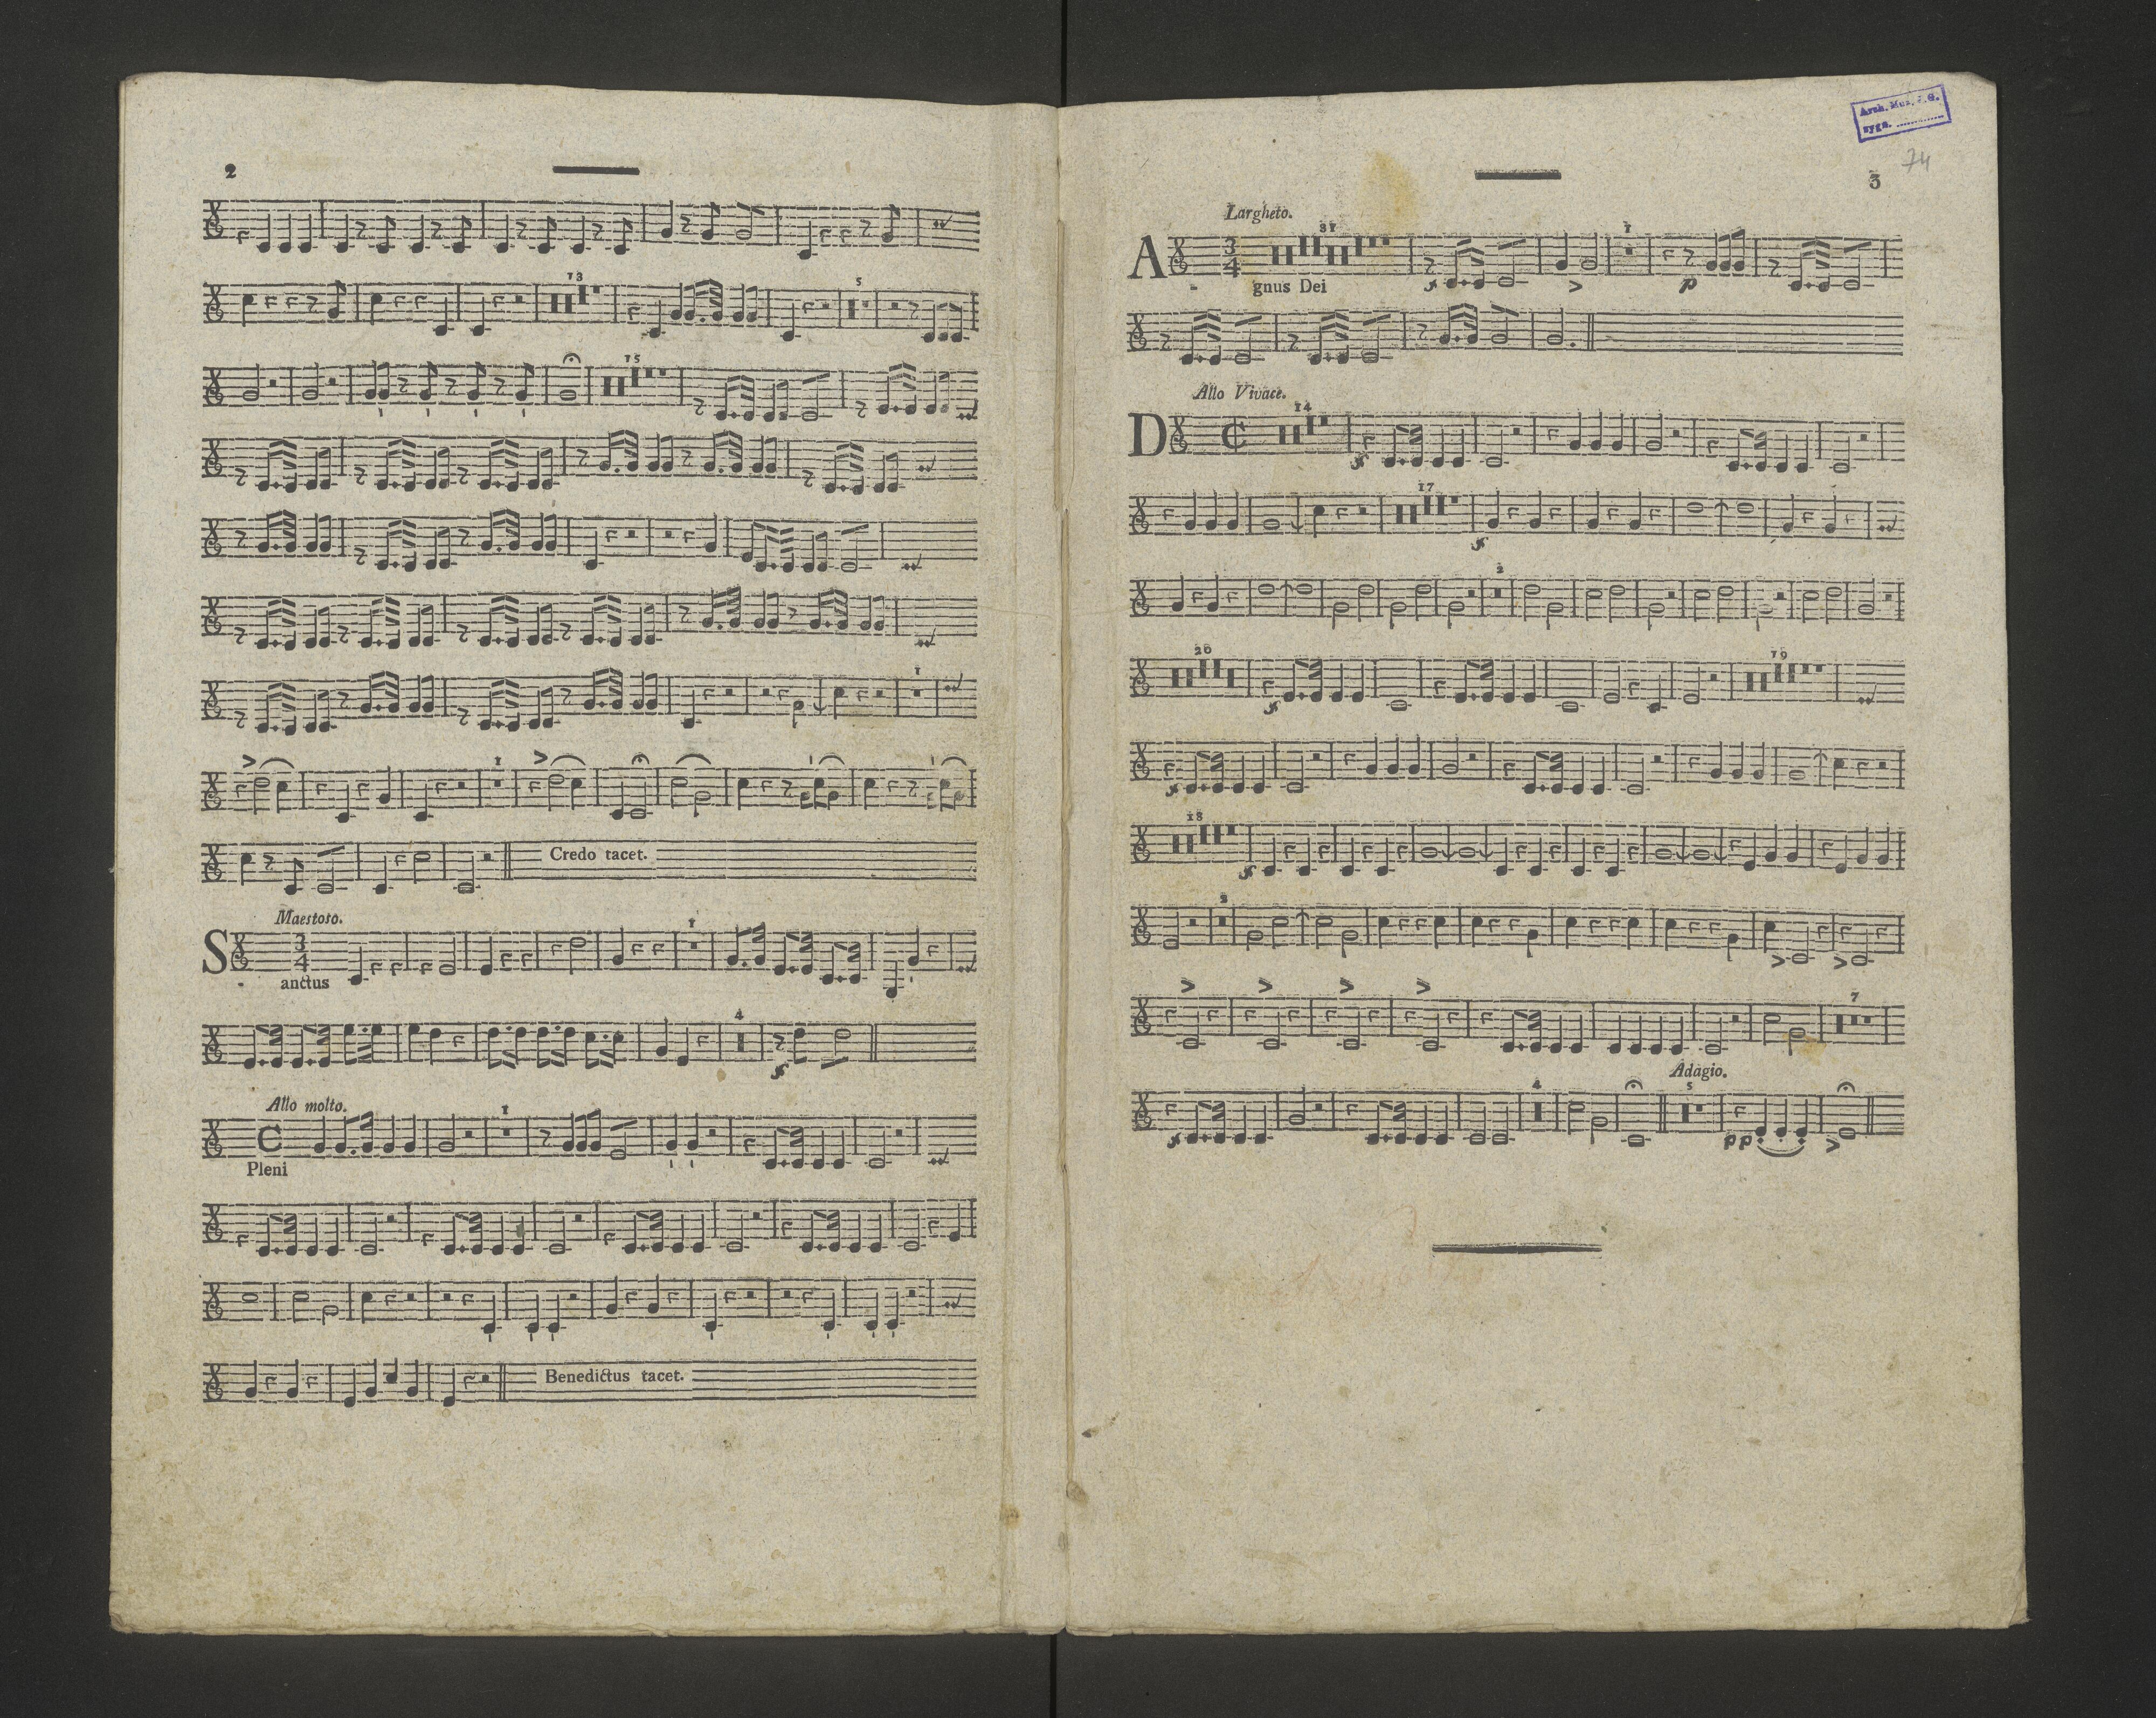 2
13
5
15
1
1
Credo tacet.
Maestoso.
3
4
1
S
anctus
4
Allo molto.
1
Pleni
Benedictus tacet.
Arch. Muz. J. G.
sygn. ..............
74
3
Largheto.
37
3
4
1
A
gnus Dei
p
Allo Vivace.
14
D
17
2
20
19
18
2
7
Adagio.
4
5
pp